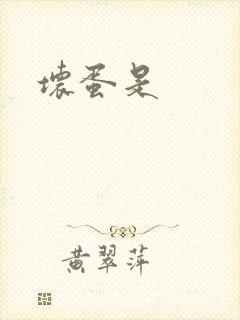 壞蛋是
黃翠萍